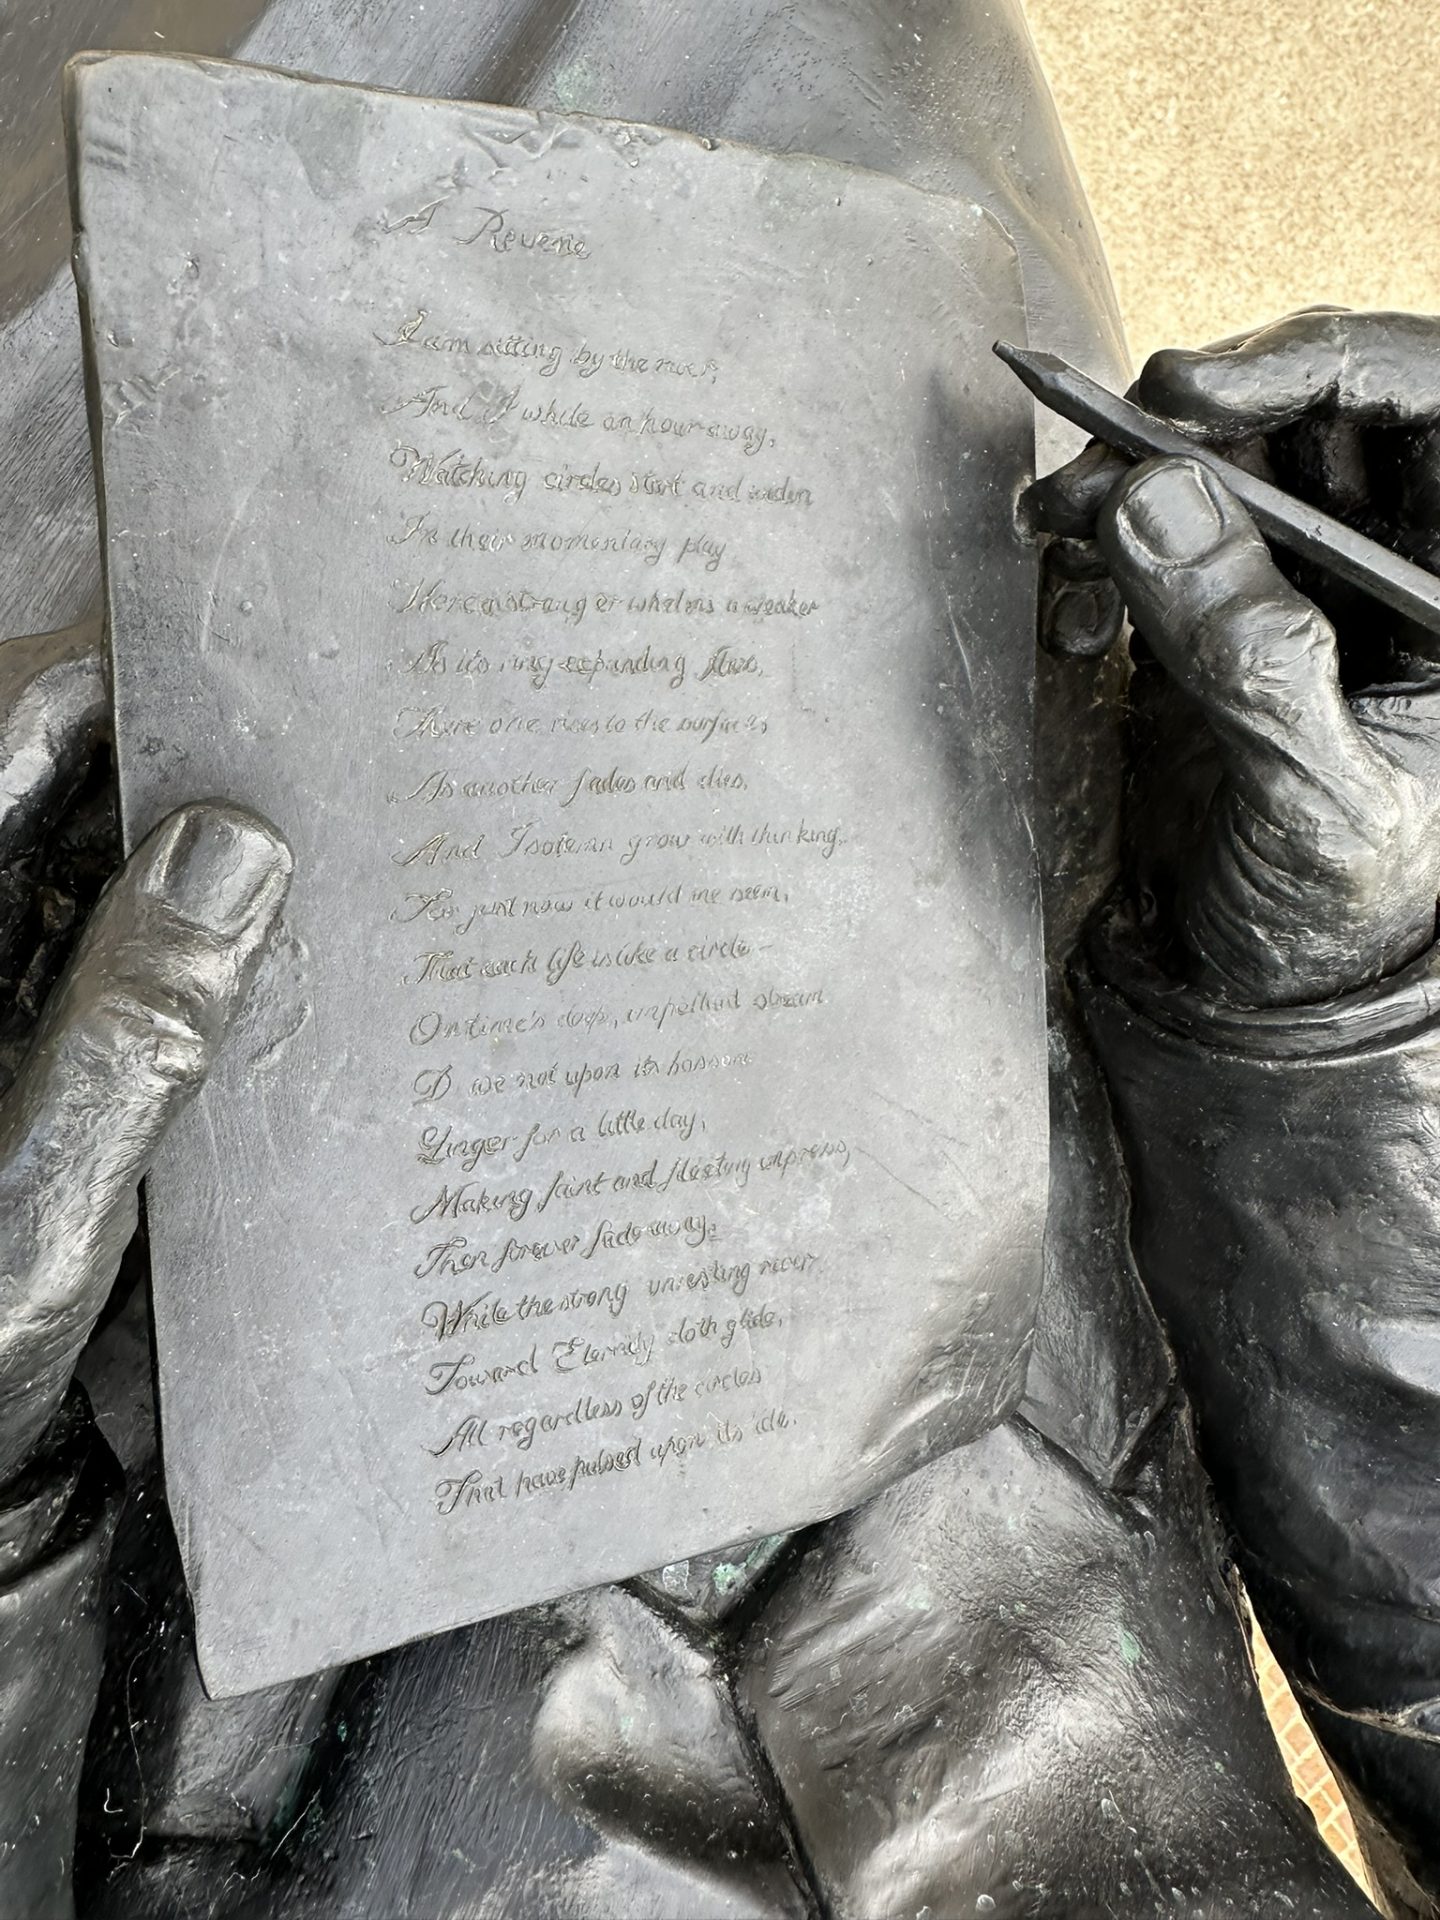 A Reverie
I am sitting by the river,
And I while an hour away,
Watching circles start and widen
In their momentary play
Here a stronger whelms a weaker
As its ring expanding flies,
There one rises to the surface,
As another fades and dies.
And I solemn grow with thinking,
For just now it would me seem,
That each life is like a circle –
On time's deep, impelled stream
D we not upon its bossom
Linger for a little day,
Making faint and fleeting impress,
Then forever fade away:
While the strong unresting river
Toward Eternity doth glide,
All regardless of the circles
That have pulsed upon its tide.